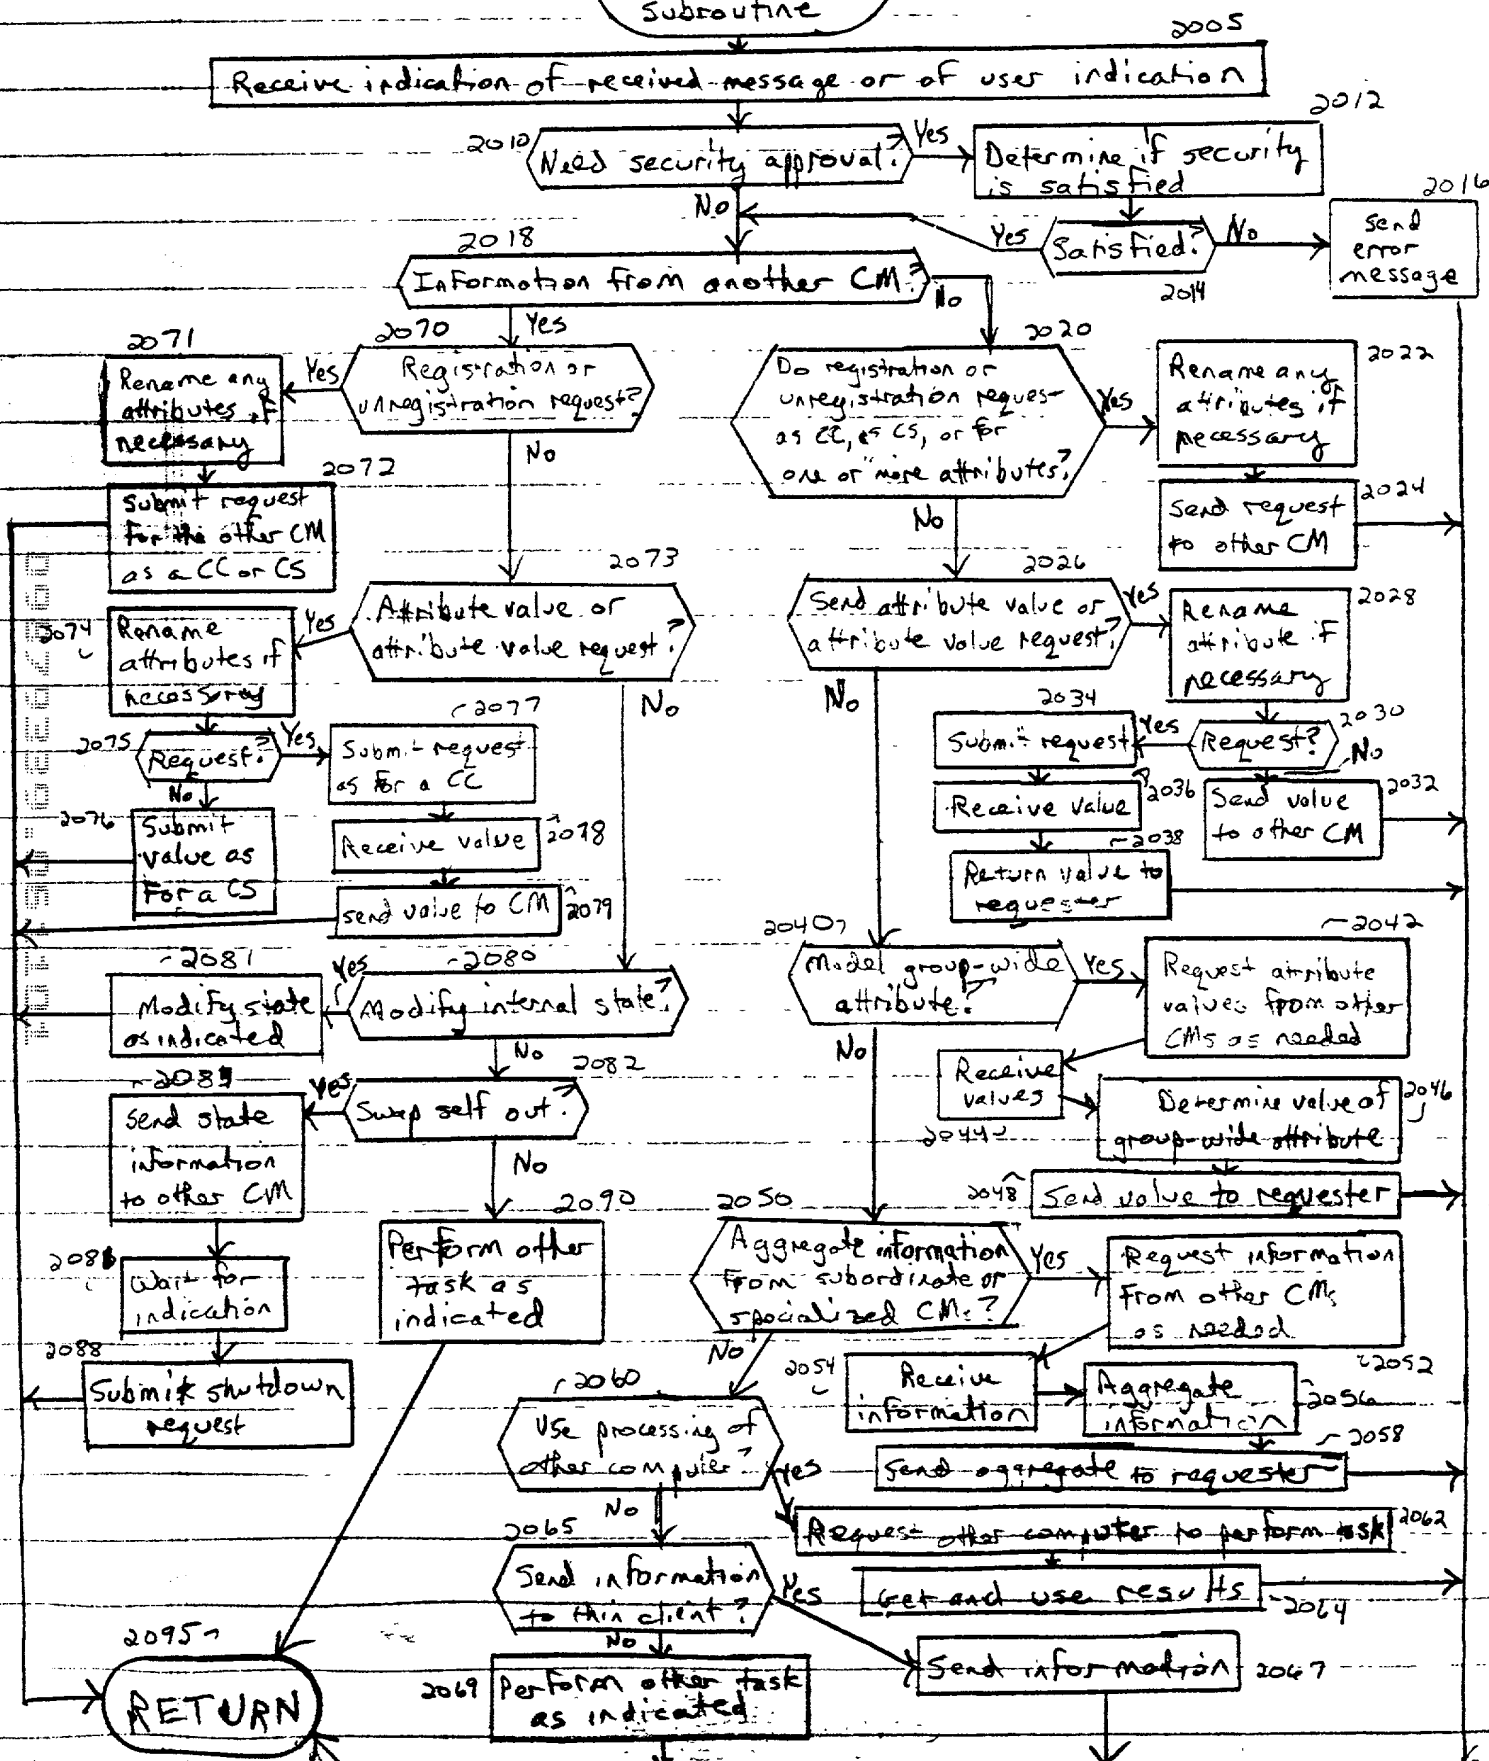 Subroutine
2005
Receive indication of received message or of user indication
2010
Need security approval?
Yes
No
2012
Determine if security
is satisfied
Satisfied?
2014
Yes
No
2016
Send
error
message
2018
Information from another CM?
Yes
No
2070
Registration or
unregistration request?
Yes
No
2071
Rename any
attributes if
necessary
2072
Submit request
for the other CM
as a CC or CS
2073
Attribute value or
attribute value request?
Yes
No
2074
Rename
attributes if
necessary
2075
Request?
Yes
No
2076
Submit
value as
for a CS
2077
Submit request
as for a CC
2078
Receive value
2079
send value to CM
2080
Modify internal state?
Yes
No
2081
Modify state
as indicated
2082
Swap self out?
Yes
No
Send state
information
to other CM
Wait for
indication
2088
Submit shutdown
request
2090
Perform other
task as
indicated
2020
Do registration or
unregistration request
as CC, as CS, or for
one or more attributes?
Yes
No
2022
Rename any
attributes if
necessary
2024
Send request
to other CM
2026
Send attribute value or
attribute value request?
Yes
No
2028
Rename
attribute if
necessary
2030
Request?
Yes
No
2032
Send value
to other CM
2034
Submit request
2036
Receive value
2038
Return value to
requester
2040
Model group-wide
attribute?
Yes
No
2042
Request attribute
values from other
CMs as needed
2044
Receive
values
2046
Determine value of
group-wide attribute
2048
Send value to requester
2050
Aggregate information
from subordinate or
specialized CMs?
Yes
No
2052
Request information
from other CMs
as needed
2054
Receive
information
2056
Aggregate
information
2058
Send aggregate to requester
2060
Use processing of
other computer?
Yes
No
2062
Request other computer to perform task
2064
Get and use results
2065
Send information
to thin client?
Yes
No
2067
Send information
2069
Perform other task
as indicated
2095
RETURN